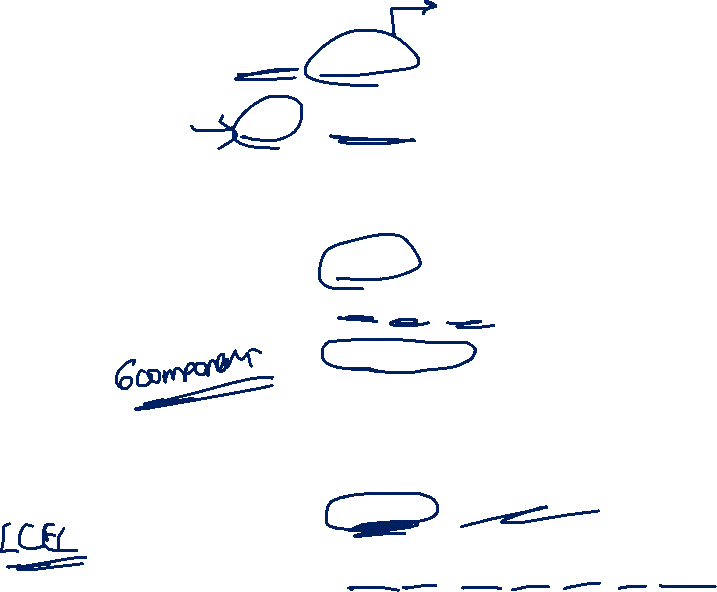 6 component
LCEL